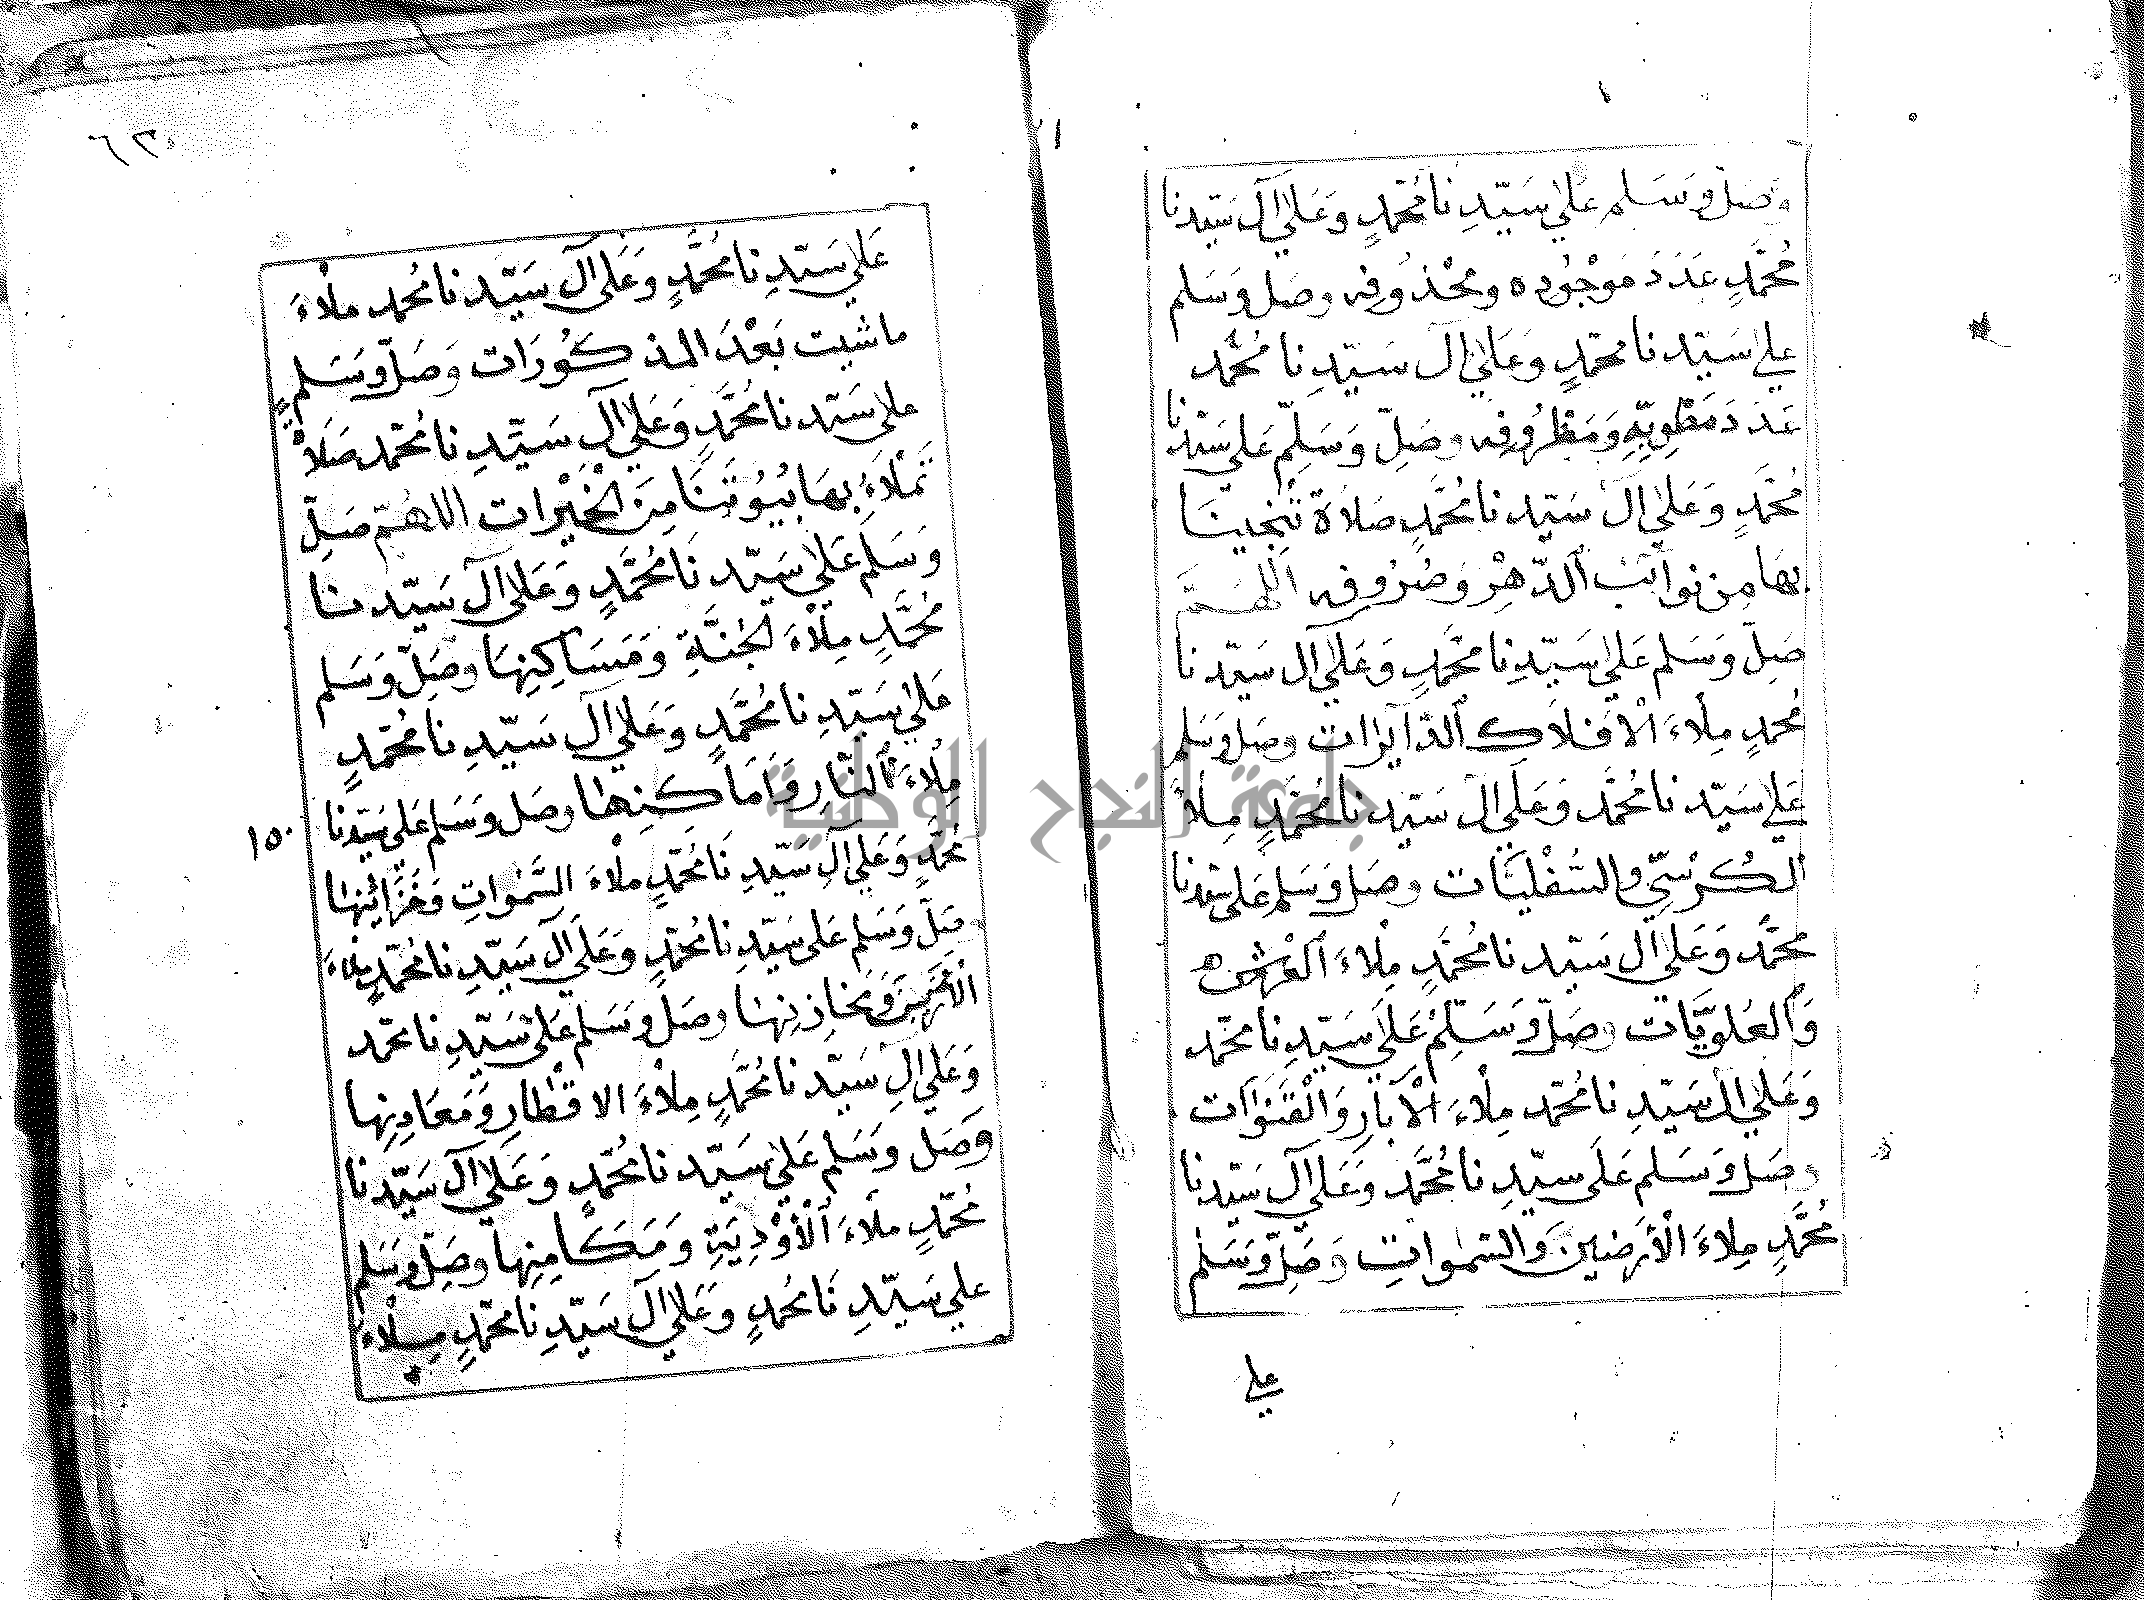 وصل وَسَلم علي سَيّدِنا مُحمَّدٍ وَعَليٰ آل سَيّدنا
مُحَمَّدٍ عَدَدَ مَوْجُودِه ومحْذُوفِه وصَل وَسَلم
علي سَيّدنا محمّدٍ وَعَليٰ آل سَيّدِنا مُحَمّد
عَدَدَ مَطْوِيّهِ وَمَظرُوفِه وصَلِّ وَسَلِّم عَلي سَيّدنا
مُحَمَّدٍ وَعَليٰ آل سَيّد نا مُحَمَّدٍ صَلاَةً تُنْجِينَا
بهَا مِن نوائب الدّهْرِ وَصُرُوفِه اللهمّ
صَلِّ وَسَلم عَليٰ سَيّدِنا محمّدٍ وَعَليٰ آل سَيّدنا
مُحمدٍ مِلاءَ الْافْلاَك الدَّآيرات وصَل وَسَلم
عَلي سَيّدنا مُحَمَّد وَعَلَي آل سَيّدنا مُحَمَّدٍ مِلاءَ
الكُرْسِّي والسُفْليَّات وصَل وَسَلم عَلي سَيّدنا
محمَّد وَعَلي آل سَيّدنا مُحَمَّدٍ مِلاءَ العَرْشِ
وَالعُلويَّات وصَلّ وَسَلِّمْ عَلَي سَيّدِنا محمّد
وَعَليٰ آل سَيّدِنا مُحَمّد مِلْاءَ الْآبَارِ وَالْقَنَوَات
وصَل وَسَلم عَلَي سيّدِنا مُحَمَّد وَعَلي آل سَيّدنا
مُحَمَّدٍ مِلاءَ الْأرَضينَ وَالسَّمٰواتِ وَصَلِّ وَسَلم
علي
٦٣
عَلي سَيّدِنا مُحَمَّدٍ وَعَلي آل سَيّدنا مُحمد ملْاءَ
ما شيت بَعْدَ المذكُورَات وَصَلّ وَسَلم
علي سَيّدنا مُحَمَّدٍ وَعَليٰ آل سَيّدِنا مُحَمّد صَلاةً
تَمْلَاءُ بهَا بُيُوتَنَا مِنَ الْخَيْرات اللاهمّ صَلِّ
وَسَلم عَليٰ سَيّدنَا مُحَمَّدٍ وَعَليٰ آل سَيّدنا
مُحَمَّدٍ مِلْاءَ الجَنَّةِ وَمَسَاكِنِهَا وصَلِّ وَسَلم
عَليٰ سَيّدِنا مُحَمَّدٍ وَعَليٰ آل سَيّدِنا مُحمّدٍ
مِلْاءَ النَّارِ وَأمَاكنِهٰا وصَل وَسَلم عَلي سَيّدنا
١٥٠
مُحمَّدٍ وَعَلي آلِ سَيّدِنَا مُحمّدٍ ملْاءَ السَّمٰواتِ وَخَزائِنِهٰا
وصَلّ وَسَلم عَلي سَيّدِنا مُحمّدٍ وَعَلَي آل سَيّدِنا مُحَمّدٍ ملاءَ
الْأرَضِينَ وَمَخازِنِهٰا وصَلّ وَسَلم عَلي سَيّدِنا محمّد
وَعَلي آلِ سَيّدنا مُحَمَّدٍ مِلْاءَ الاقطْارِ وَمَعَادِنِها
وَصَل وَسَلم عَليٰ سَيّدنا مُحمّدٍ وَعَليٰ آل سَيّدنا
مُحمّدٍ ملاءَ الْأَوْدِيَةِ وَمَكَامِنِها وصَلِّ وَسَلم
علي سَيّدِنَا مُحمدٍ وعَلي آل سَيّدِنا محمّدٍ مِلْاءَ
جامعة النجاح الوطنية